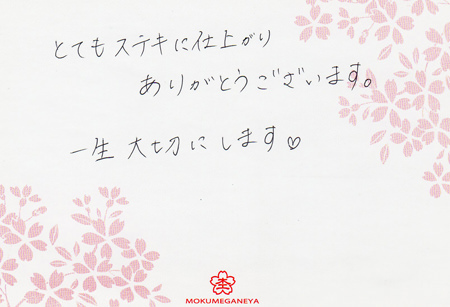 とてもステキに仕上がり
ありがとうございます。
一生大切にします♡
MOKUMEGANEYA